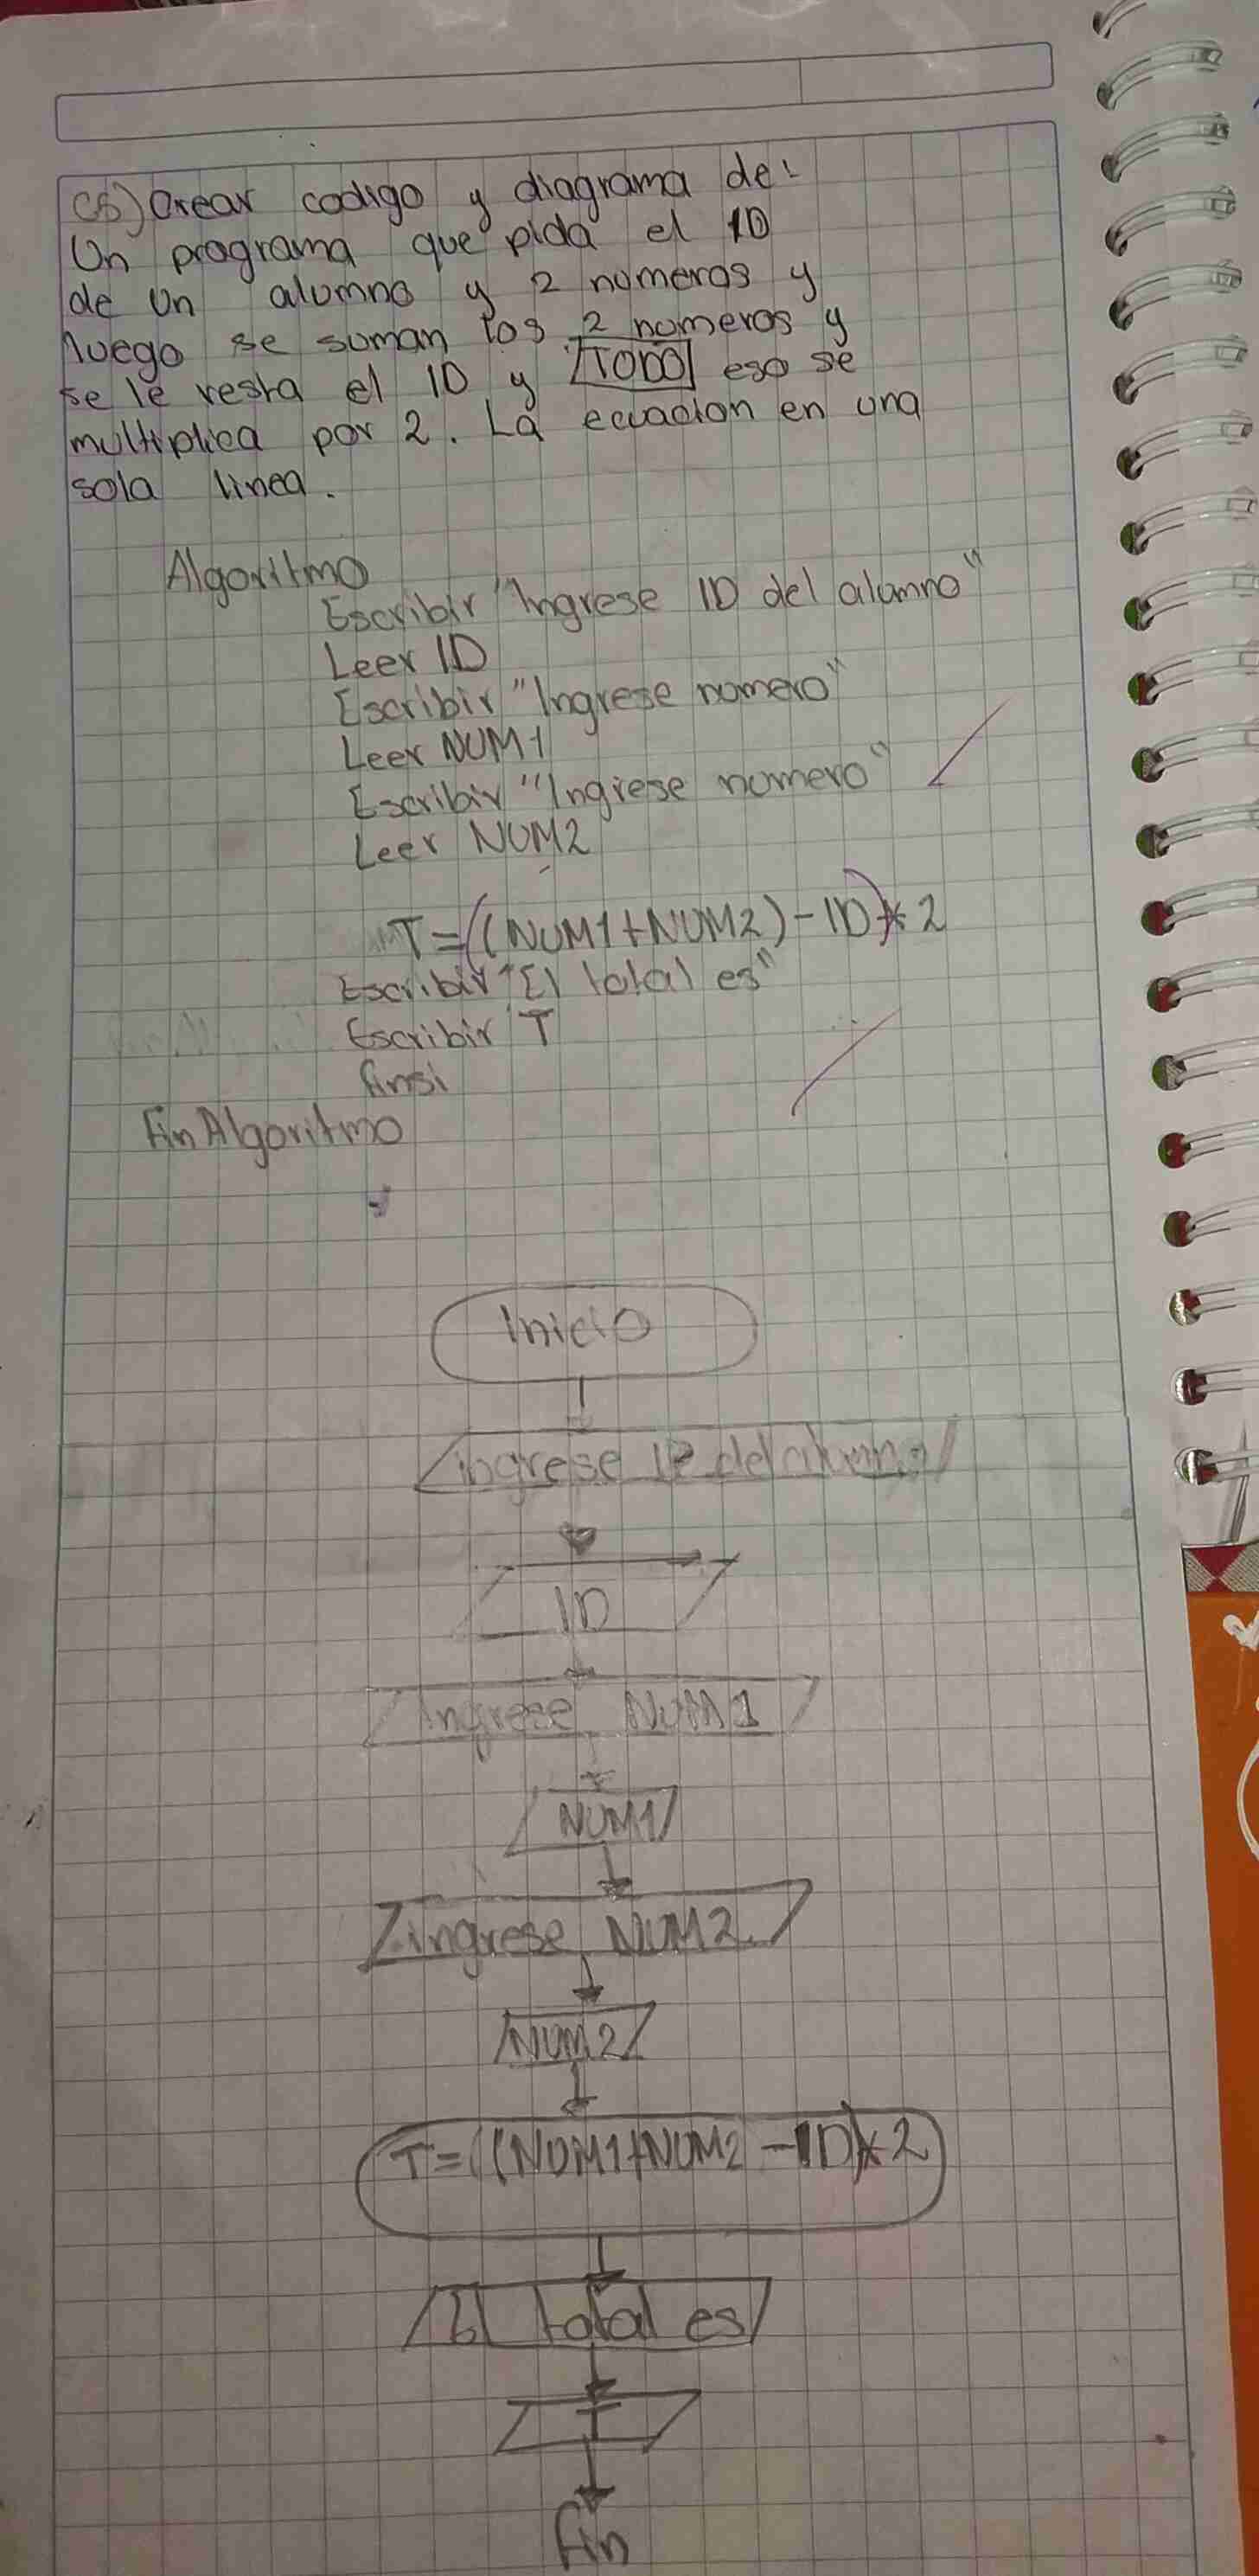 C5) Crear codigo y diagrama de:
Un programa que pida el ID
de un alumno y 2 numeros y
luego se suman los 2 numeros y
se le resta el ID y TODO eso se
multiplica por 2. La ecuacion en una
sola linea.
Algoritmo
Escribir "Ingrese ID del alumno"
Leer ID
Escribir "Ingrese numero"
Leer NUM1
Escribir "Ingrese numero"
Leer NUM2
T=((NUM1+NUM2)-ID)*2
Escribir "El total es"
Escribir T
finsi
Fin Algoritmo
Inicio
ingrese ID del alumno
ID
Ingrese NUM1
NUM1
ingrese NUM2
NUM2
T=((NUM1+NUM2 -ID)*2
El total es
T
fin